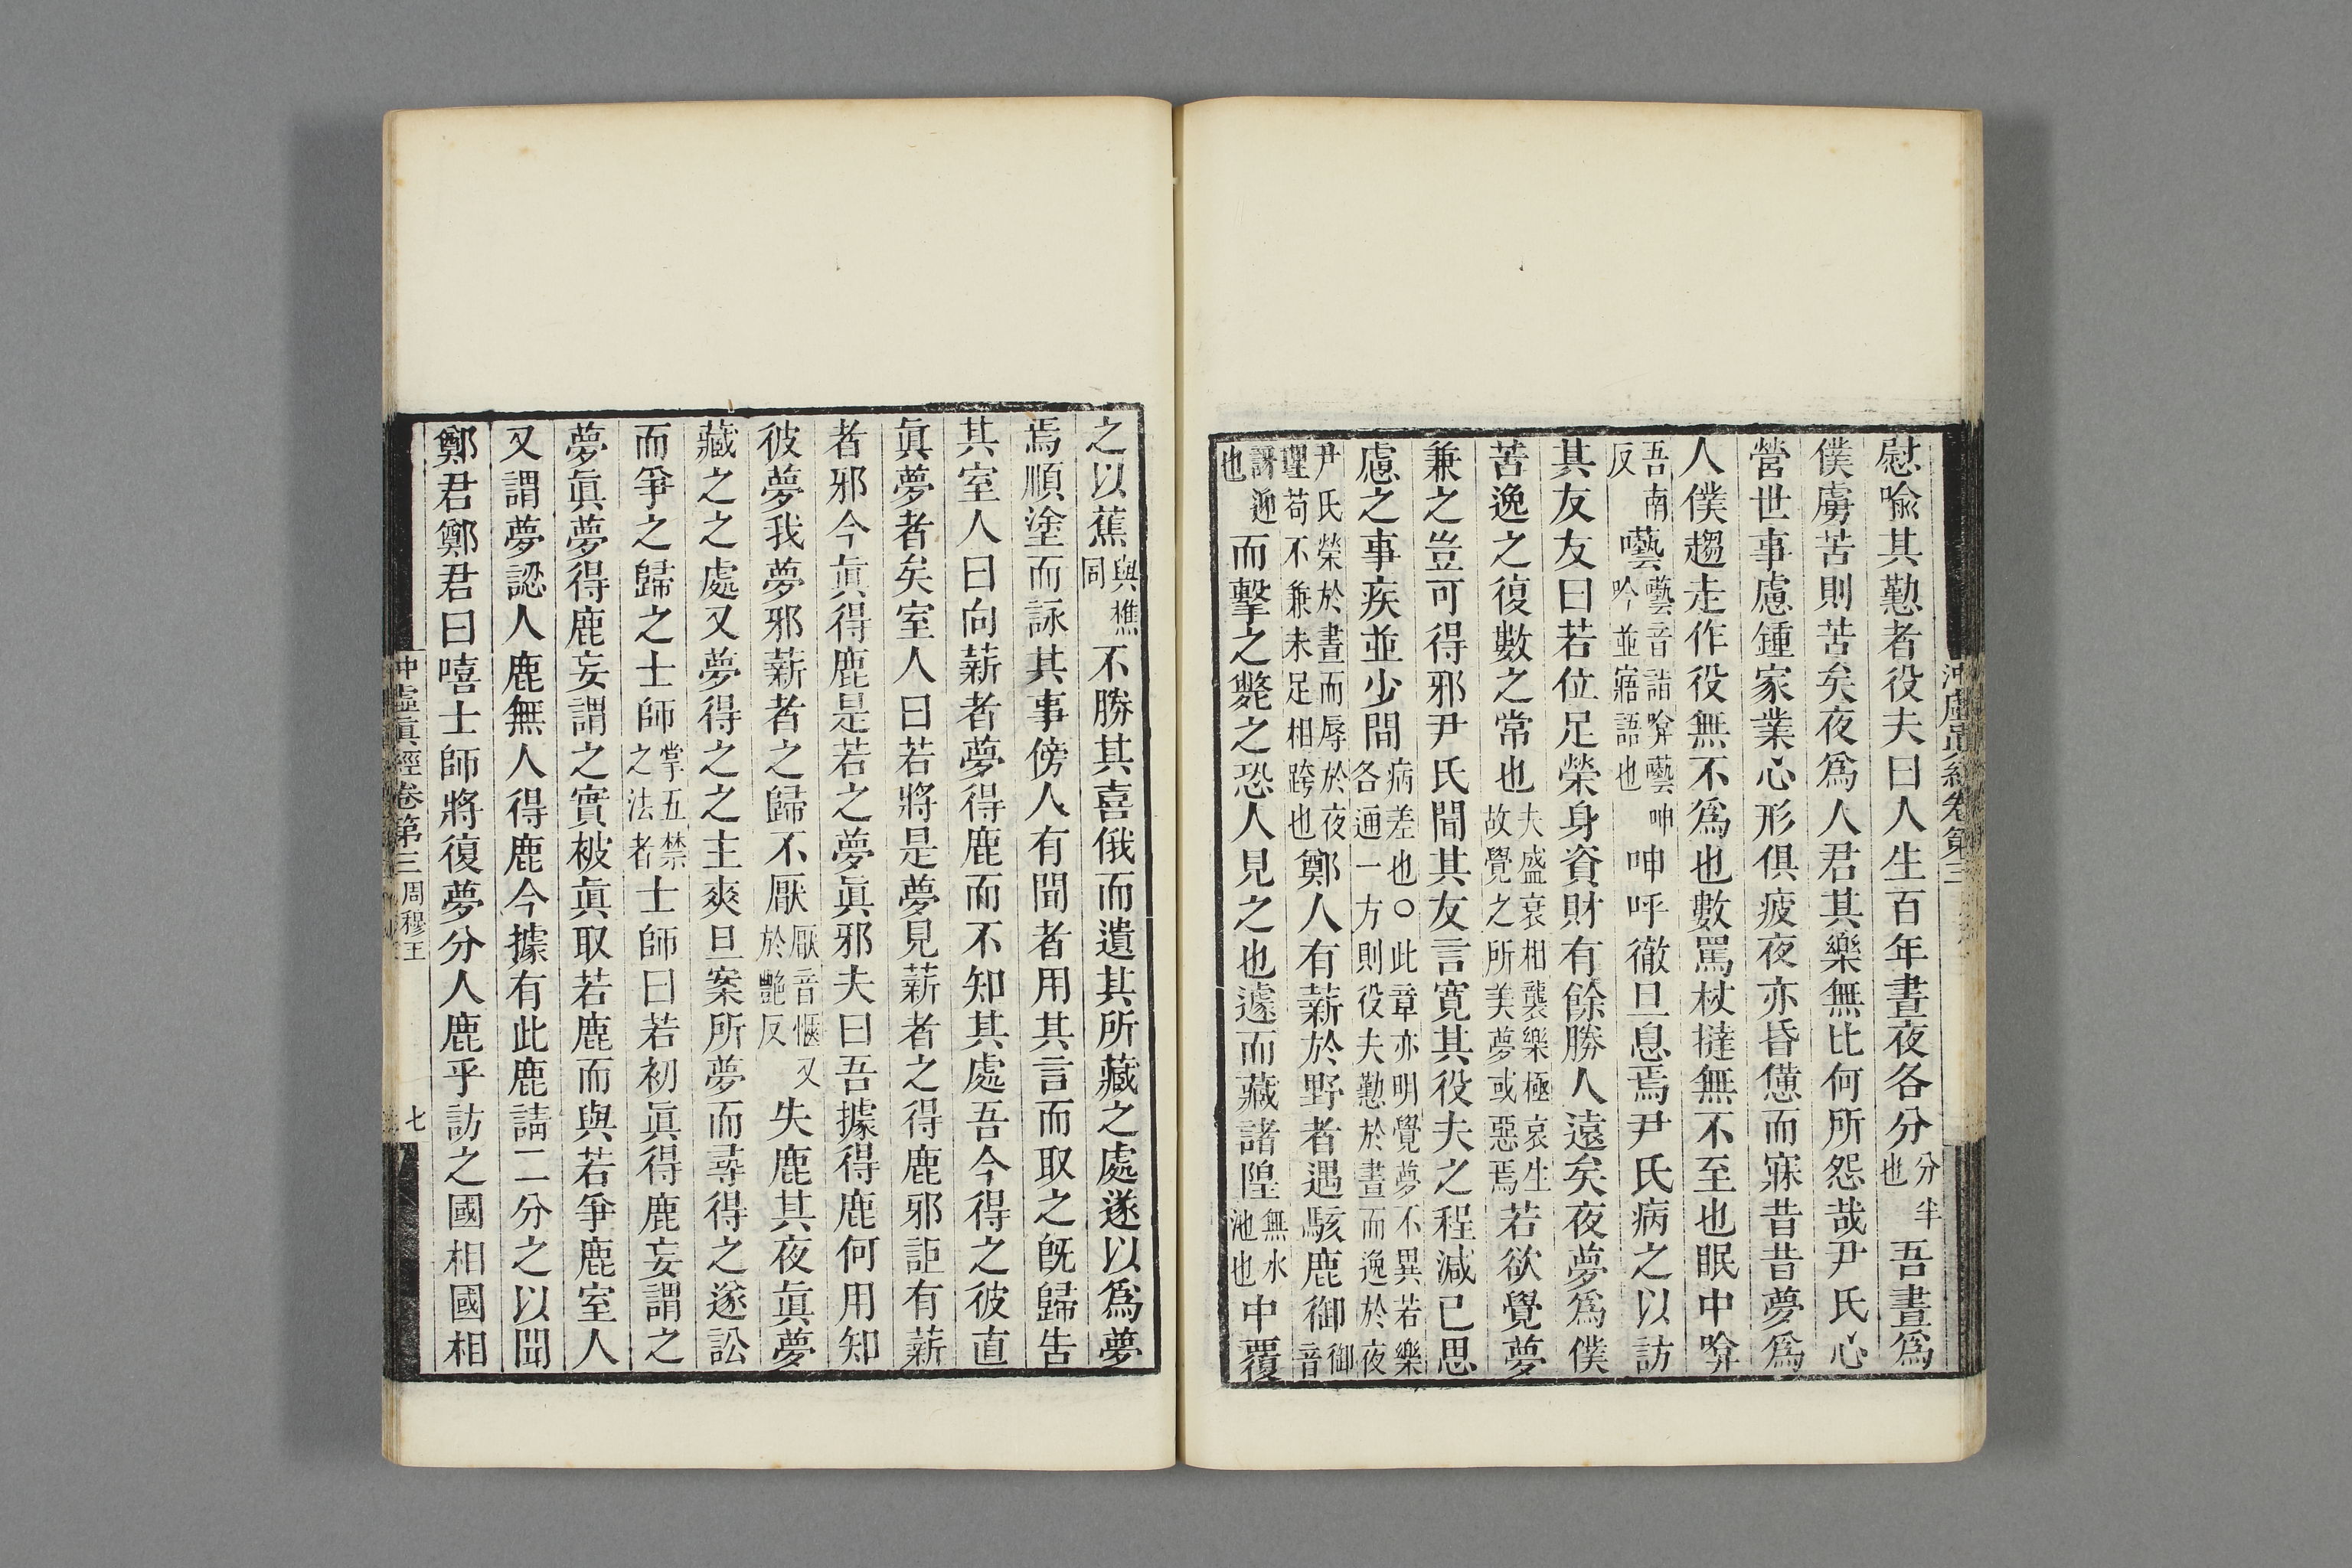 慰喩其懃者役夫曰人生百年晝夜各分分半也吾晝爲
僕虜苦則苦矣夜爲人君其樂無比何所怨哉尹氏心
營世事慮鍾家業心形俱疲夜亦昏憊而寐昔昔夢爲
人僕趨走作役無不爲也數罵杖撻無不至也眠中啽
吾南反囈囈音詣啽囈呻吟並寤語也呻呼徹旦息焉尹氏病之以訪
其友友曰若位足榮身資財有餘勝人遠矣夜夢爲僕
苦逸之復數之常也夫盛衰相襲樂極哀生故覺之所美夢或惡焉若欲覺夢
兼之豈可得邪尹氏聞其友言寛其役夫之程減已思
慮之事疾並少間病差也○此章亦明覺夢不異若樂各通一方則役夫懃於晝而逸於夜
尹氏榮於晝而辱於夜理苟不兼未足相跨也鄭人有薪於野者遇駭鹿御御音
訝迎也而擊之斃之恐人見之也遽而藏諸隍無水池也中覆
之以蕉與樵同不勝其喜俄而遺其所藏之處遂以爲夢
焉順塗而詠其事傍人有聞者用其言而取之旣歸告
其室人曰向薪者夢得鹿而不知其處吾今得之彼直
眞夢者矣室人曰若將是夢見薪者之得鹿邪詎有薪
者邪今眞得鹿是若之夢眞邪夫曰吾據得鹿何用知
彼夢我夢邪薪者之歸不厭厭音愜又於艷反失鹿其夜眞夢
藏之之處又夢得之之主爽旦案所夢而尋得之遂訟
而爭之歸之士師掌五禁之法者士師曰若初眞得鹿妄謂之
夢眞夢得鹿妄謂之實彼眞取若鹿而與若爭鹿室人
又謂夢認人鹿無人得鹿今據有此鹿請二分之以聞
鄭君鄭君曰嘻士師將復夢分人鹿乎訪之國相國相
冲虛眞經卷第三 周穆王 七